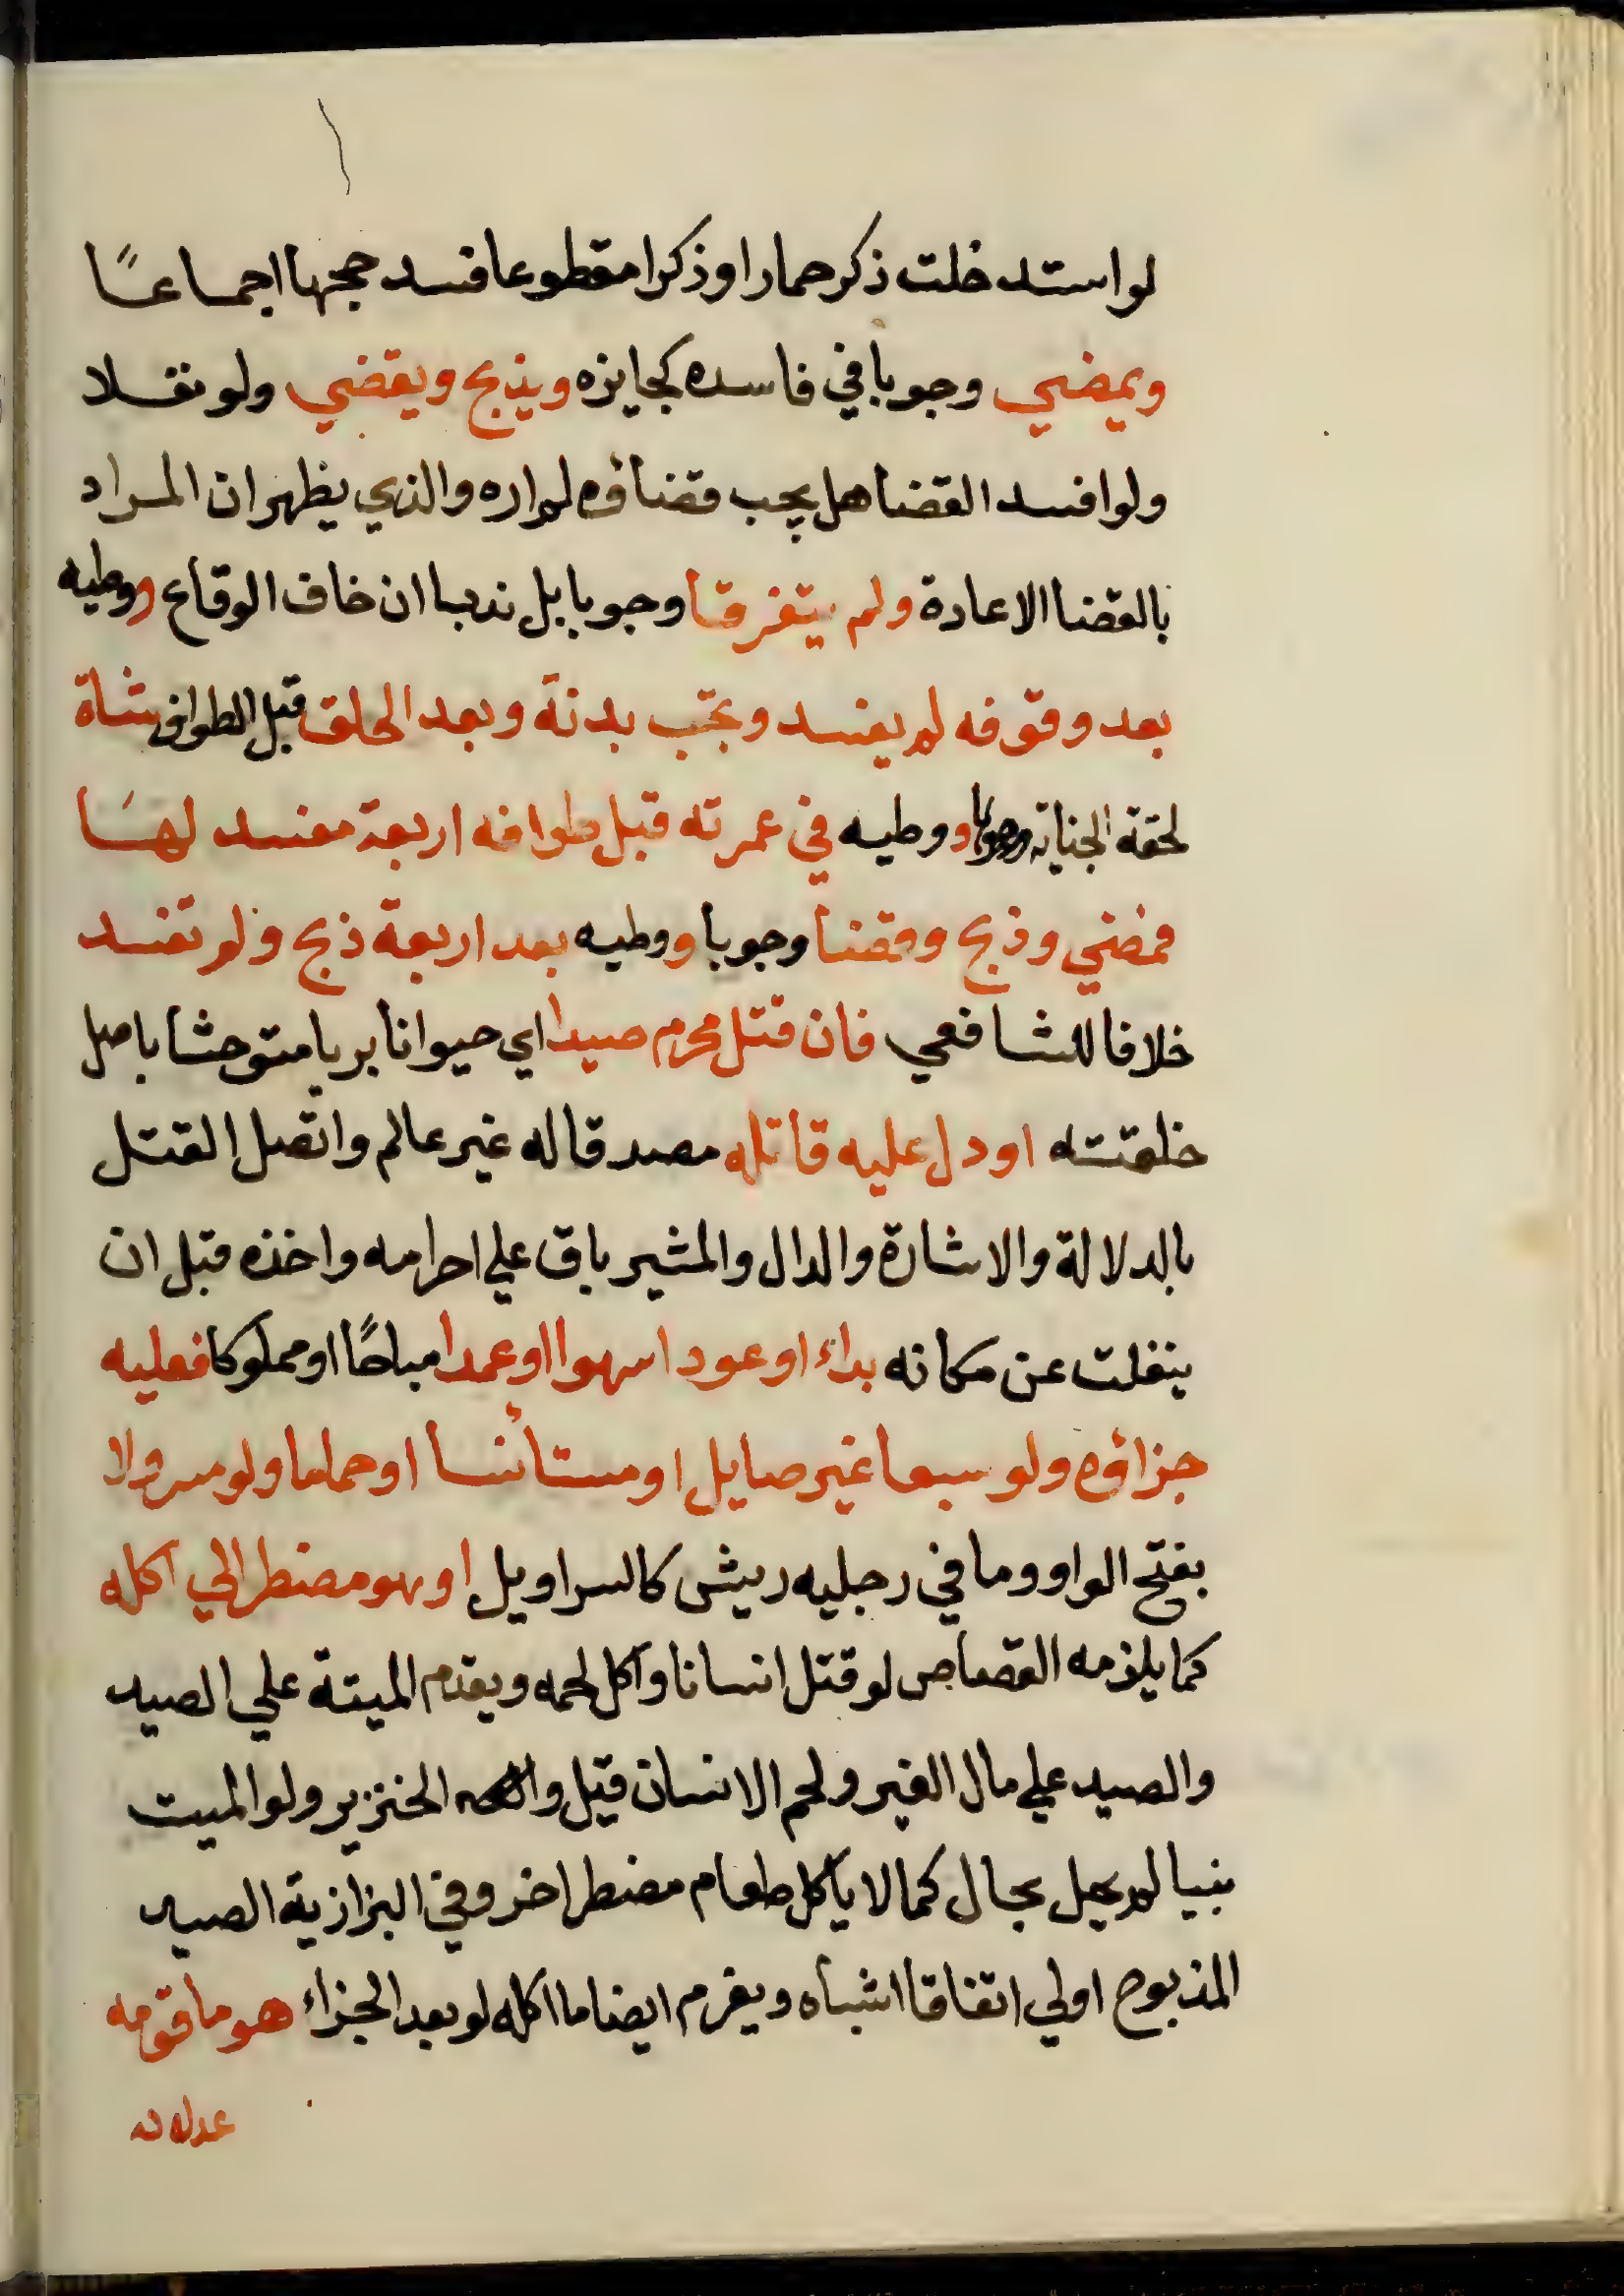 لو استدخلت ذكر حمار او ذكرا مقطوعا فسد حجها اجماعًا
ويمضي وجوبا في فاسده كجايزه ويذبح ويقضي ولو نفلا
ولو افسد القضا هل يجب قضاؤه لم اره والذي يظهر ان المراد
بالقضا الاعادة ولم يتفرقا وجوبا بل ندبا ان خاف الوقاع ووطيه
بعد وقوفه لم يفسد وتجب بدنة وبعد الحلق قبل الطواف شاة
لخفة الجناية وجوبا و ووطيه في عمرته قبل طوافه اربعة مفسد لها
فمضي وذبح وقضا وجوبا ووطيه بعد اربعة ذبح ولم تفسد
خلافا للشافعي فان قتل محرم صيدا اي حيوانا بريا متوحشا باصل
خلقته او دل عليه قاتله مصدقا له غير عالم واتصل القتل
بالدلالة والاشارة والدال والمشير باق علي احرامه واخذه قبل ان
ينفلت عن مكانه بداء او عودا سهوا او عمدا مباحًا او مملوكا فعليه
جزاؤه ولو سبعا غير صايل او مستأنسا او حماما ولو مسرولا
بفتح الواو وما في رجليه ريش كالسراويل او هو مضطر الي اكله
كما يلزمه القصاص لو قتل انسانا واكل لحمه ويقدم الميتة علي الصيد
والصيد علي مال الغير ولحم الانسان قيل والخنزير ولو الميت
نبيا لم يحل بحال كما لا ياكل طعام مضطر اخر وفي البزازية الصيد
المذبوح اولي اتفاقا اشباه ويغرم ايضا ما اكله لو بعد الجزاء هو ما قومه
عدلان